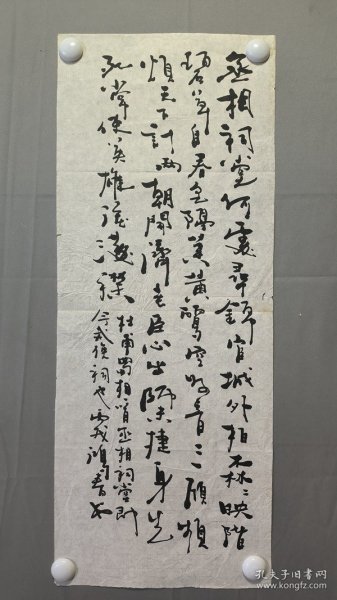 丞相祠堂何處尋錦官城外柏森〻映階
碧草自春色隔葉黃鸝空好音三顧頻
煩天下計兩朝開濟老臣心出師未捷身先
死常使英雄淚滿襟
杜甫蜀相丞相祠堂即
今武侯祠也丙戌
孔夫子旧书网